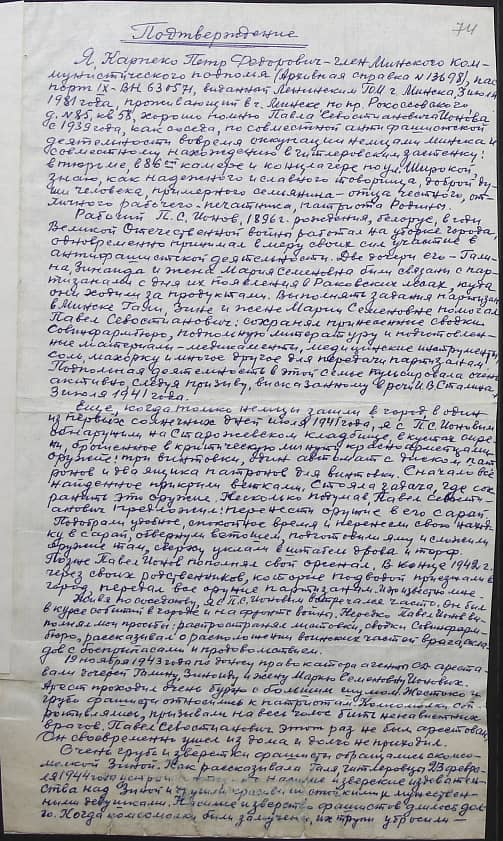 74
Подтверждение
Я, Карпеко Петр Федорович – член Минского ком-
мунистического подполья (Архивная справка № 13698), пас-
порт IX-ВН 631571, выданной Ленинским ГОМ г. Минска, 3 июля
1981 года, проживающий в г. Минске по пр. Рокоссовского,
д. № 85, кв 58, хорошо помню Павла Севостиановича Ионова
с 1939 года, как соседа, по совместной антифашистской
деятельности вовремя оккупации немцами Минска и
совместному нахождению в гитлеровских застенку:
в тюрьме, в 86ой камере и концлагере по ул. Широкой,
знаю, как надежного и славного товарища, доброй ду-
ши человека, примерного семьянина – отца, честного, от-
личного рабочего – печатника, патриота Родины.
Рабочий П.С. Ионов, 1896 г. рождения, белорус, в годы
Великой Отечественной войны работал на уборке города,
одновременно принимал в меру своих сил участие в
антифашистской деятельности. Две дочери его – Гали-
на, Зинаида и жена Мария Семеновна были связаны с пар-
тизанами с дня их появления в Раковских лесах, куда
они ходили за продуктами. Выполнять задания партизан
в Минске Гали, Зине и жене Марии Семеновне помогал
Павел Севостианович: сохранял принесенные сводки
Совинформбюро, подпольную литературу и приготовлен-
ные материалы – медикаменты, медицинские инструменты,
соль, махорку и многое другое для передачи партизанам.
Подпольная деятельность в этой семье пульсировала очень
активно, следуя призыву, высказанному в речи И.В. Сталина,
3 июля 1941 года.
Еще, когда только немцы зашли в город в один
из первых солнечных дней июля 1941 года, я с П.С. Ионовым
обнаружили на Сторожевском кладбище, в кустах сире-
ни, брошенное в критическую минуту красноармейцами
оружие: три винтовки, один автомат с диском пат-
ронов и два ящика патронов для винтовки. Сначала всё
найденное прикрыли ветками. Стояла задача, где сох-
ранить это оружие. Несколько подумав Павел Севости-
анович предложил: перенести оружие в его сарай.
Подобрали удобное, спокойное время и перенесли свою наход-
ку в сарай, обвернули ветошью, подготовили яму и сложили
оружие там, сверху уклали в штабель дрова и торф.
Позже Павел Ионов пополнял свой арсенал. В конце 1942 г.
через своих родственников, которые подводой приезжали в
город, передал все оружие партизанам. Известно мне.
Живя по соседству, я с П.С. Ионовым встречался часто. Он был
в курсе событий в городе и на фронте войны. Нередко Павел Ионов вы-
полнял мои просьбы: распространял листовки, сводки Совинформ-
бюро, рассказывал о расположении воинских частей врага, скла-
дов с боеприпасами и продовольствием.
19 ноября 1943 года по доносу провокатора агенты СД аресто-
вали дочерей Галину, Зинаиду и жену Марию Семеновну Ионовых.
Арест проходил очень бурно с большим шумом. Жестоко и
грубо фашисты относились к патриотам. Комсомолки соп-
ротивлялись, призывали на весь голос бить ненавистных
врагов. Павел Севостианович этот раз не был арестован.
Он своевременно ушел из дома и долго не приходил.
Очень грубо и зверски фашисты обращались с комсо-
молкой Зиной. Как рассказывала Галя, гитлеровцы 23 февра-
ля 1944 года насилие и зверские издеватель-
ства над Зиной и другими красивыми стойкими и мужествен-
ными девушками. Насилие и зверство фашистов длилось дол-
го. Когда комсомолки были замучены, их трупы увозили –